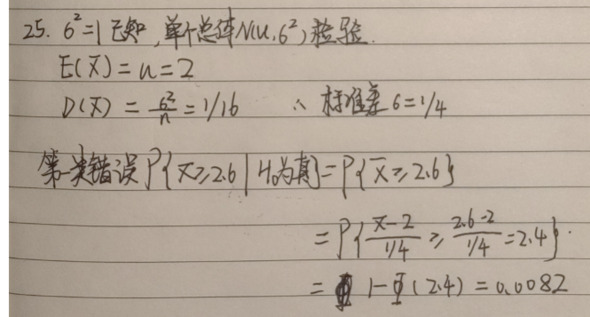 25. σ²=1 已知, 单个总体N(u,σ²)检验.
E(X̄) = u = 2
D(X̄) = σ²/n = 1/16 ∴ 标准差 σ=1/4
第一类错误 P{X̄≥2.6 | H₀为真}=P{X̄≥2.6}
= P{(X̄-2)/(1/4) ≥ (2.6-2)/(1/4) = 2.4}.
= 1-Φ(2.4) = 0.0082